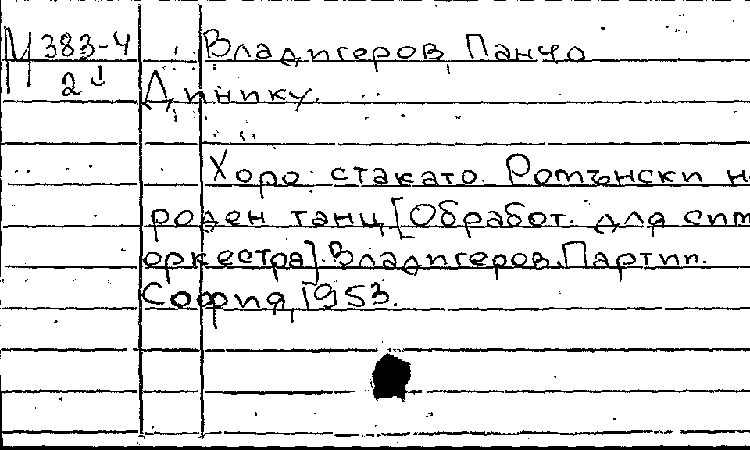 М 383-4 Владигеров, Панчо
2↓ Динику.
Хоро: стакато. Ромънски н
роден танц [Обработ. для сим
оркестра]. Владигеров. Партип.
София, 1953.